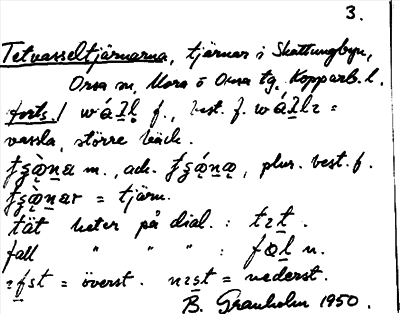 3.
Tetvasseltjärnarna, tjärnar i Skattungbyn,
Orsa sn, Mora o Orsa tg, Kopparb. l.
forts./ wáḷḷ f., best. f. wáḷḷɿ =
vassla, större bäck.
m., ack. , plur. best. f.
= tjärn.
tät heter på dial. : tɿt.
fall " " " : fɷl n.
ɿfst = överst. nɿst = nederst.
B. Granholm 1950.